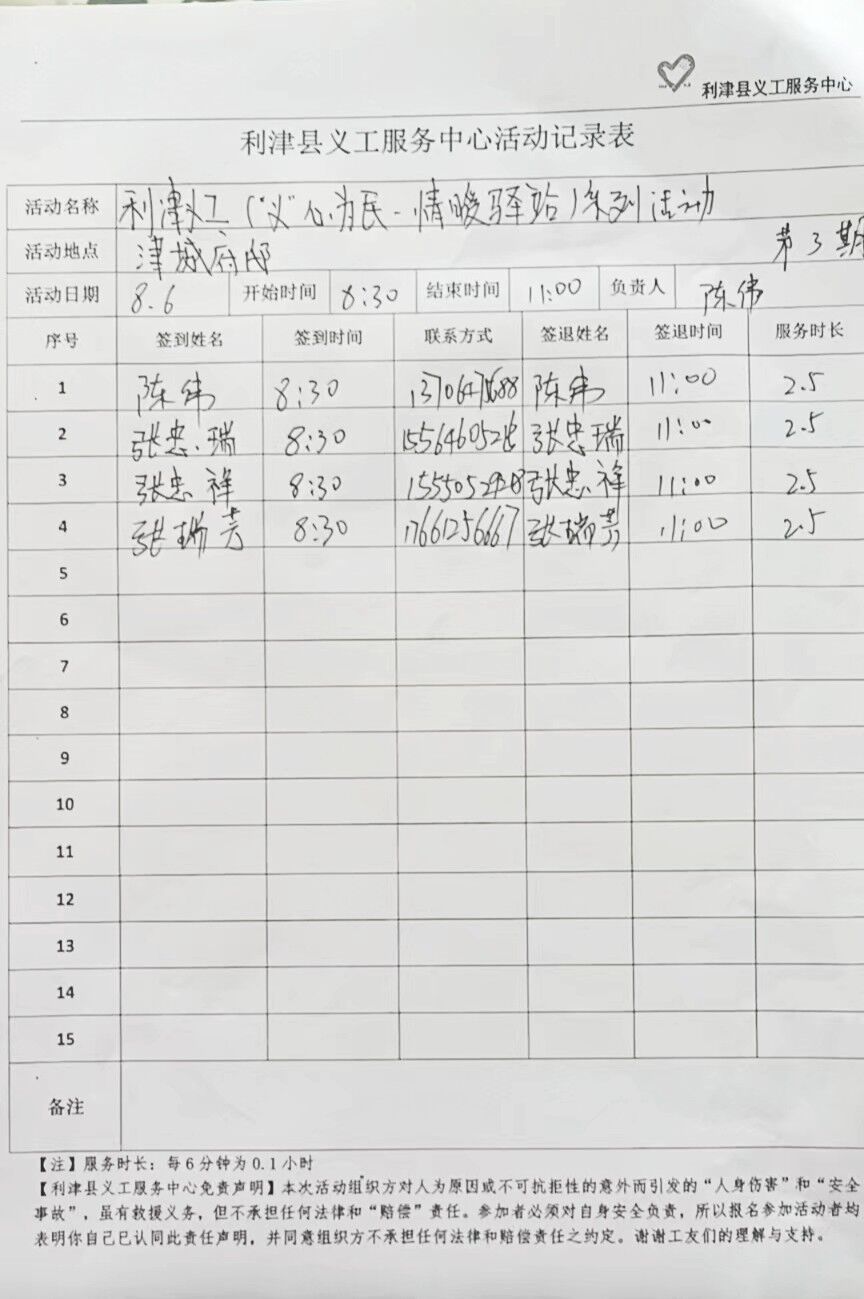 利津县义工服务中心
利津县义工服务中心活动记录表
活动名称 利津义工（“义”心为民-情暖驿站）系列活动
活动地点 津城府邸 第3期
活动日期 8.6 开始时间 8:30 结束时间 11:00 负责人 陈伟
序号 签到姓名 签到时间 联系方式 签退姓名 签退时间 服务时长
1 陈伟 8:30 陈伟 11:00 2.5
2 张忠瑞 8:30 张忠瑞 11:00 2.5
3 张忠祥 8:30 张忠祥 11:00 2.5
4 张瑞芳 8:30 17661256667 张瑞芳 11:00 2.5
5
6
7
8
9
10
11
12
13
14
15
备注
【注】服务时长：每6分钟为0.1小时
【利津县义工服务中心免责声明】本次活动组织方对人为原因或不可抗拒性的意外而引发的“人身伤害”和“安全
事故”，虽有救援义务，但不承担任何法律和“赔偿”责任。参加者必须对自身安全负责，所以报名参加活动者均
表明你自己已认同此责任声明，并同意组织方不承担任何法律和赔偿责任之约定。谢谢工友们的理解与支持。